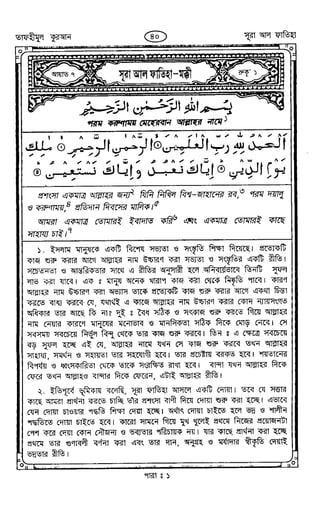 তাফহীমুল কুরআন
৪০
সূরা আল ফাতিহা
আয়াত ৭
সূরা আল ফাতিহা-মক্কী
রুকূ' ১
بسم الله الرحمٰن الرحيم
পরম করুণাময় মেহেরবান আল্লাহর নামে
الحمد لله رب العلمين الرحمن الرحيم ملك
يوم الدين اياك نعبد واياك نستعين
প্রশংসা একমাত্র আল্লাহর জন্য যিনি নিখিল বিশ্ব-জাহানের রব, পরম দয়ালু
ও করুণাময়, প্রতিদান দিবসের মালিক।
আমরা একমাত্র তোমারই ইবাদাত করি এবং একমাত্র তোমারই কাছে
সাহায্য চাই।
১. ইসলাম মানুষকে একটি বিশেষ সভ্যতা ও সংস্কৃতি শিক্ষা দিয়েছে। প্রত্যেকটি
কাজ শুরু করার আগে আল্লাহর নাম উচ্চারণ করা সভ্যতা ও সংস্কৃতির একটি রীতি।
সচেতনতা ও আন্তরিকতার সাথে এ রীতির অনুসারী হলে অনিবার্যভাবে তিনটি সুফল
লাভ করা যাবে। এক ঃ মানুষ অনেক খারাপ কাজ করা থেকে নিষ্কৃতি পাবে। কারণ
আল্লাহর নাম উচ্চারণ করা অভ্যাস তাকে প্রত্যেকটি কাজ শুরু করার আগে একথা চিন্তা
করতে বাধ্য করবে যে, যথার্থই এ কাজে আল্লাহর নাম উচ্চারণ করার কোন ন্যায়সংগত
অধিকার তার আছে কি না? দুই ঃ বৈধ সঠিক ও সৎকাজ শুরু করতে গিয়ে আল্লাহর
নাম নেয়ার কারণে মানুষের মনোভাব ও মানসিকতা সঠিক দিকে মোড় নেবে। সে
সবসময় সবচেয়ে নির্ভুল বিন্দু থেকে তার কাজ শুরু করবে। তিন ঃ এ ক্ষেত্রে সবচেয়ে
বড় সুফল হচ্ছে এই যে, আল্লাহর নামে যখন সে কাজ শুরু করবে তখন আল্লাহর
সাহায্য, সমর্থন ও সহায়তা তার সহযোগী হবে। তার প্রচেষ্টায় বরকত হবে। শয়তানের
বিপর্যয় ও ধ্বংসকারিতা থেকে তাকে সংরক্ষিত রাখা হবে। বান্দা যখন আল্লাহর দিকে
ফেরে তখন আল্লাহও বান্দার দিকে ফেরেন, এটাই আল্লাহর রীতি।
২. ইতিপূর্বে ভূমিকায় বলেছি, সূরা ফাতিহা আসলে একটি দোয়া। তবে যে সত্তার
কাছে আমরা প্রার্থনা করতে চাচ্ছি তাঁর প্রশংসা বাণী দিয়ে দোয়া শুরু করা হচ্ছে। এভাবে
যেন দোয়া চাওয়ার পদ্ধতি শিক্ষা দেয়া হচ্ছে। অর্থাৎ দোয়া চাইতে হলে ভদ্র ও শালীন
পদ্ধতিতে দোয়া চাইতে হবে। কারো সামনে গিয়ে মুখ খুলেই প্রথমে নিজের প্রয়োজনটা
পেশ করে দেয়া কোন সৌজন্য ও ভব্যতার পরিচায়ক নয়। যার কাছে প্রার্থনা করা হচ্ছে
প্রথমে তার গুণাবলী বর্ণনা করা এবং তার দান, অনুগ্রহ ও মর্যাদার স্বীকৃতি দেয়াই
ভদ্রতার রীতি।
পারা ঃ ১